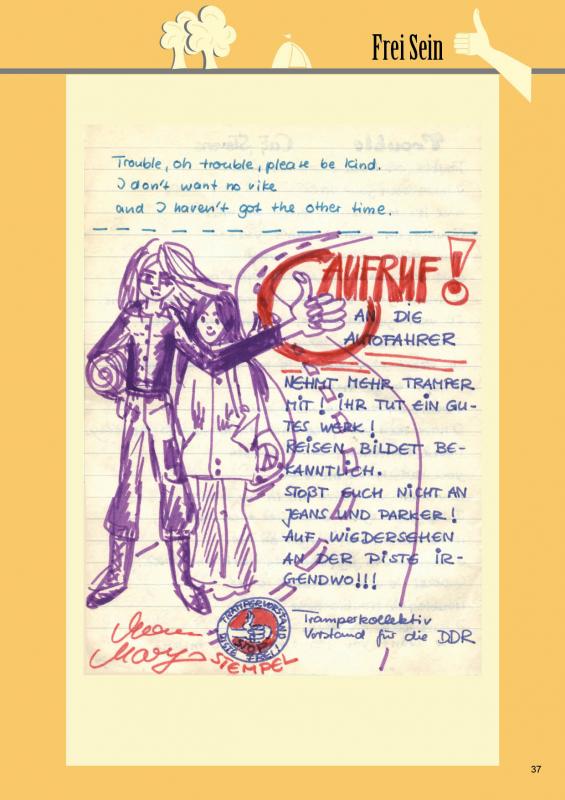 Frei Sein
Trouble
Cat Stevens
Trouble, oh trouble, please be kind.
I don't want no vike
and I haven't got the other time.
AUFRUF!
AN DIE
AUTOFAHRER
NEHMT MEHR TRAMPER
MIT! IHR TUT EIN GU-
TES WERK!
REISEN BILDET BE-
KANNTLICH.
STOßT EUCH NICHT AN
JEANS UND PARKER!
AUF WIEDERSEHEN
AN DER PISTE IR-
GENDWO!!!
Tramperkollektiv
Vorstand für die DDR
TRAMPERVORSTAND
STOP
PISTE FREI!
Mary
STEMPEL
37